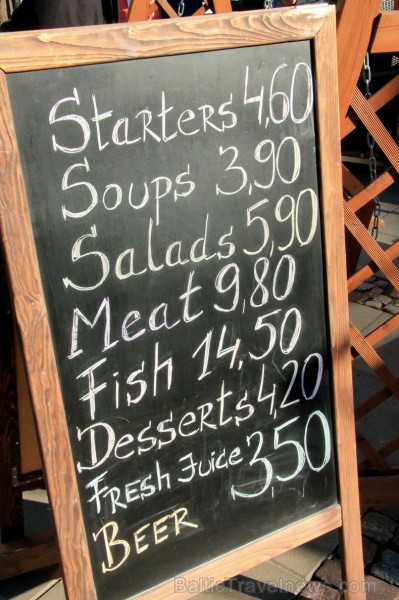 Starters 4,60
Soups 3,90
Salads 5,90
Meat 9,80
Fish 14,50
Desserts 4,20
FRESH Juice 3,50
BEER
BalticTravelnews.com